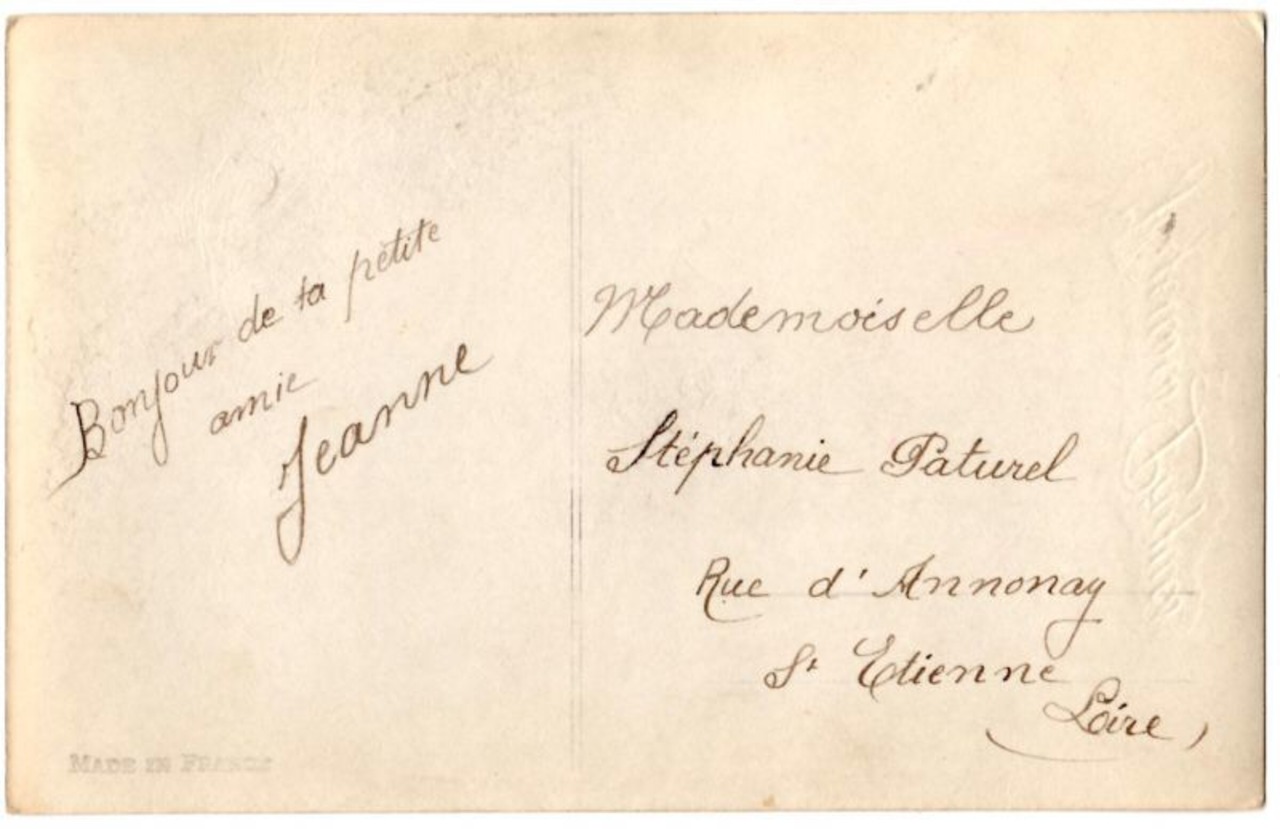 Bonjour de ta petite
amie
Jeanne
Mademoiselle
Stéphanie Paturel
Rue d'Annonay
St Etienne
(Loire)
MADE IN FRANCE